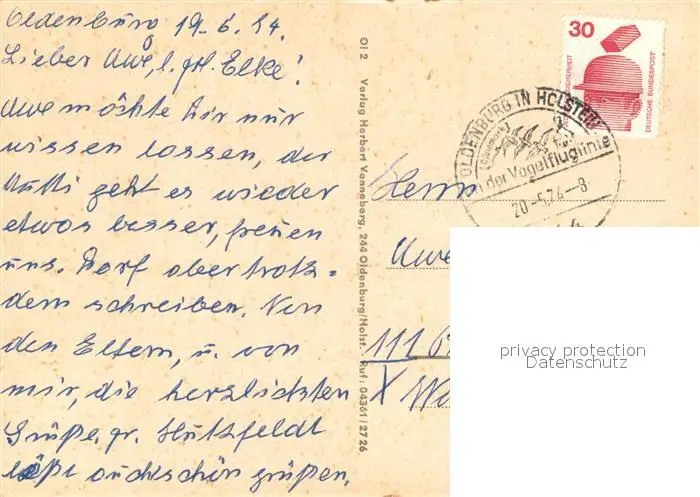 Oldenburg 19.6.74.
Lieber Uwe, l. Elke!
Uwe möchte Dir nur
wissen lassen, der
Mutti geht es wieder
etwas besser, freuen
uns. Darf aber trotz=
dem schreiben. Von
den Eltern, u. von
mir, die herzlichsten
Grüße, Hutzfeldt
läßt auch schön grüßen.
Ol 2 Verlag Herbert Venneberg, 244 Oldenburg/Holst. Ruf: 04361/2726
30
SICHERHEIT
DEUTSCHE BUNDESPOST
OLDENBURG IN HOLSTEIN
an der Vogelfluglinie
20.-5.74.-8
Herrn
Uwe
privacy protection
Datenschutz